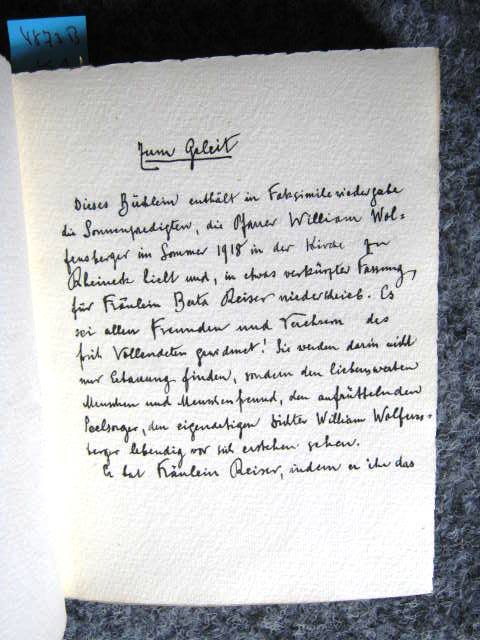 4873B
Zum Geleit
Dieses Büchlein enthält in Faksimilewiedergabe
die Sonnenpredigten, die Pfarrer William Wol=
fensberger im Sommer 1918 in der Kirche zu
Rheineck hielt und, in etwas verkürzter Fassung,
für Fräulein Berta Reiser niederschrieb. Es
sei allen Freunden und Verehrern des
früh Vollendeten gewidmet! Sie werden darin nicht
nur Erbauung finden, sondern den liebenswerten
Menschen und Menschenfreund, den aufrüttelnden
Seelsorger, den eigenartigen Dichter William Wolfens=
berger lebendig vor sich erstehen sehen.
Er bat Fräulein Reiser, indem er ihr das